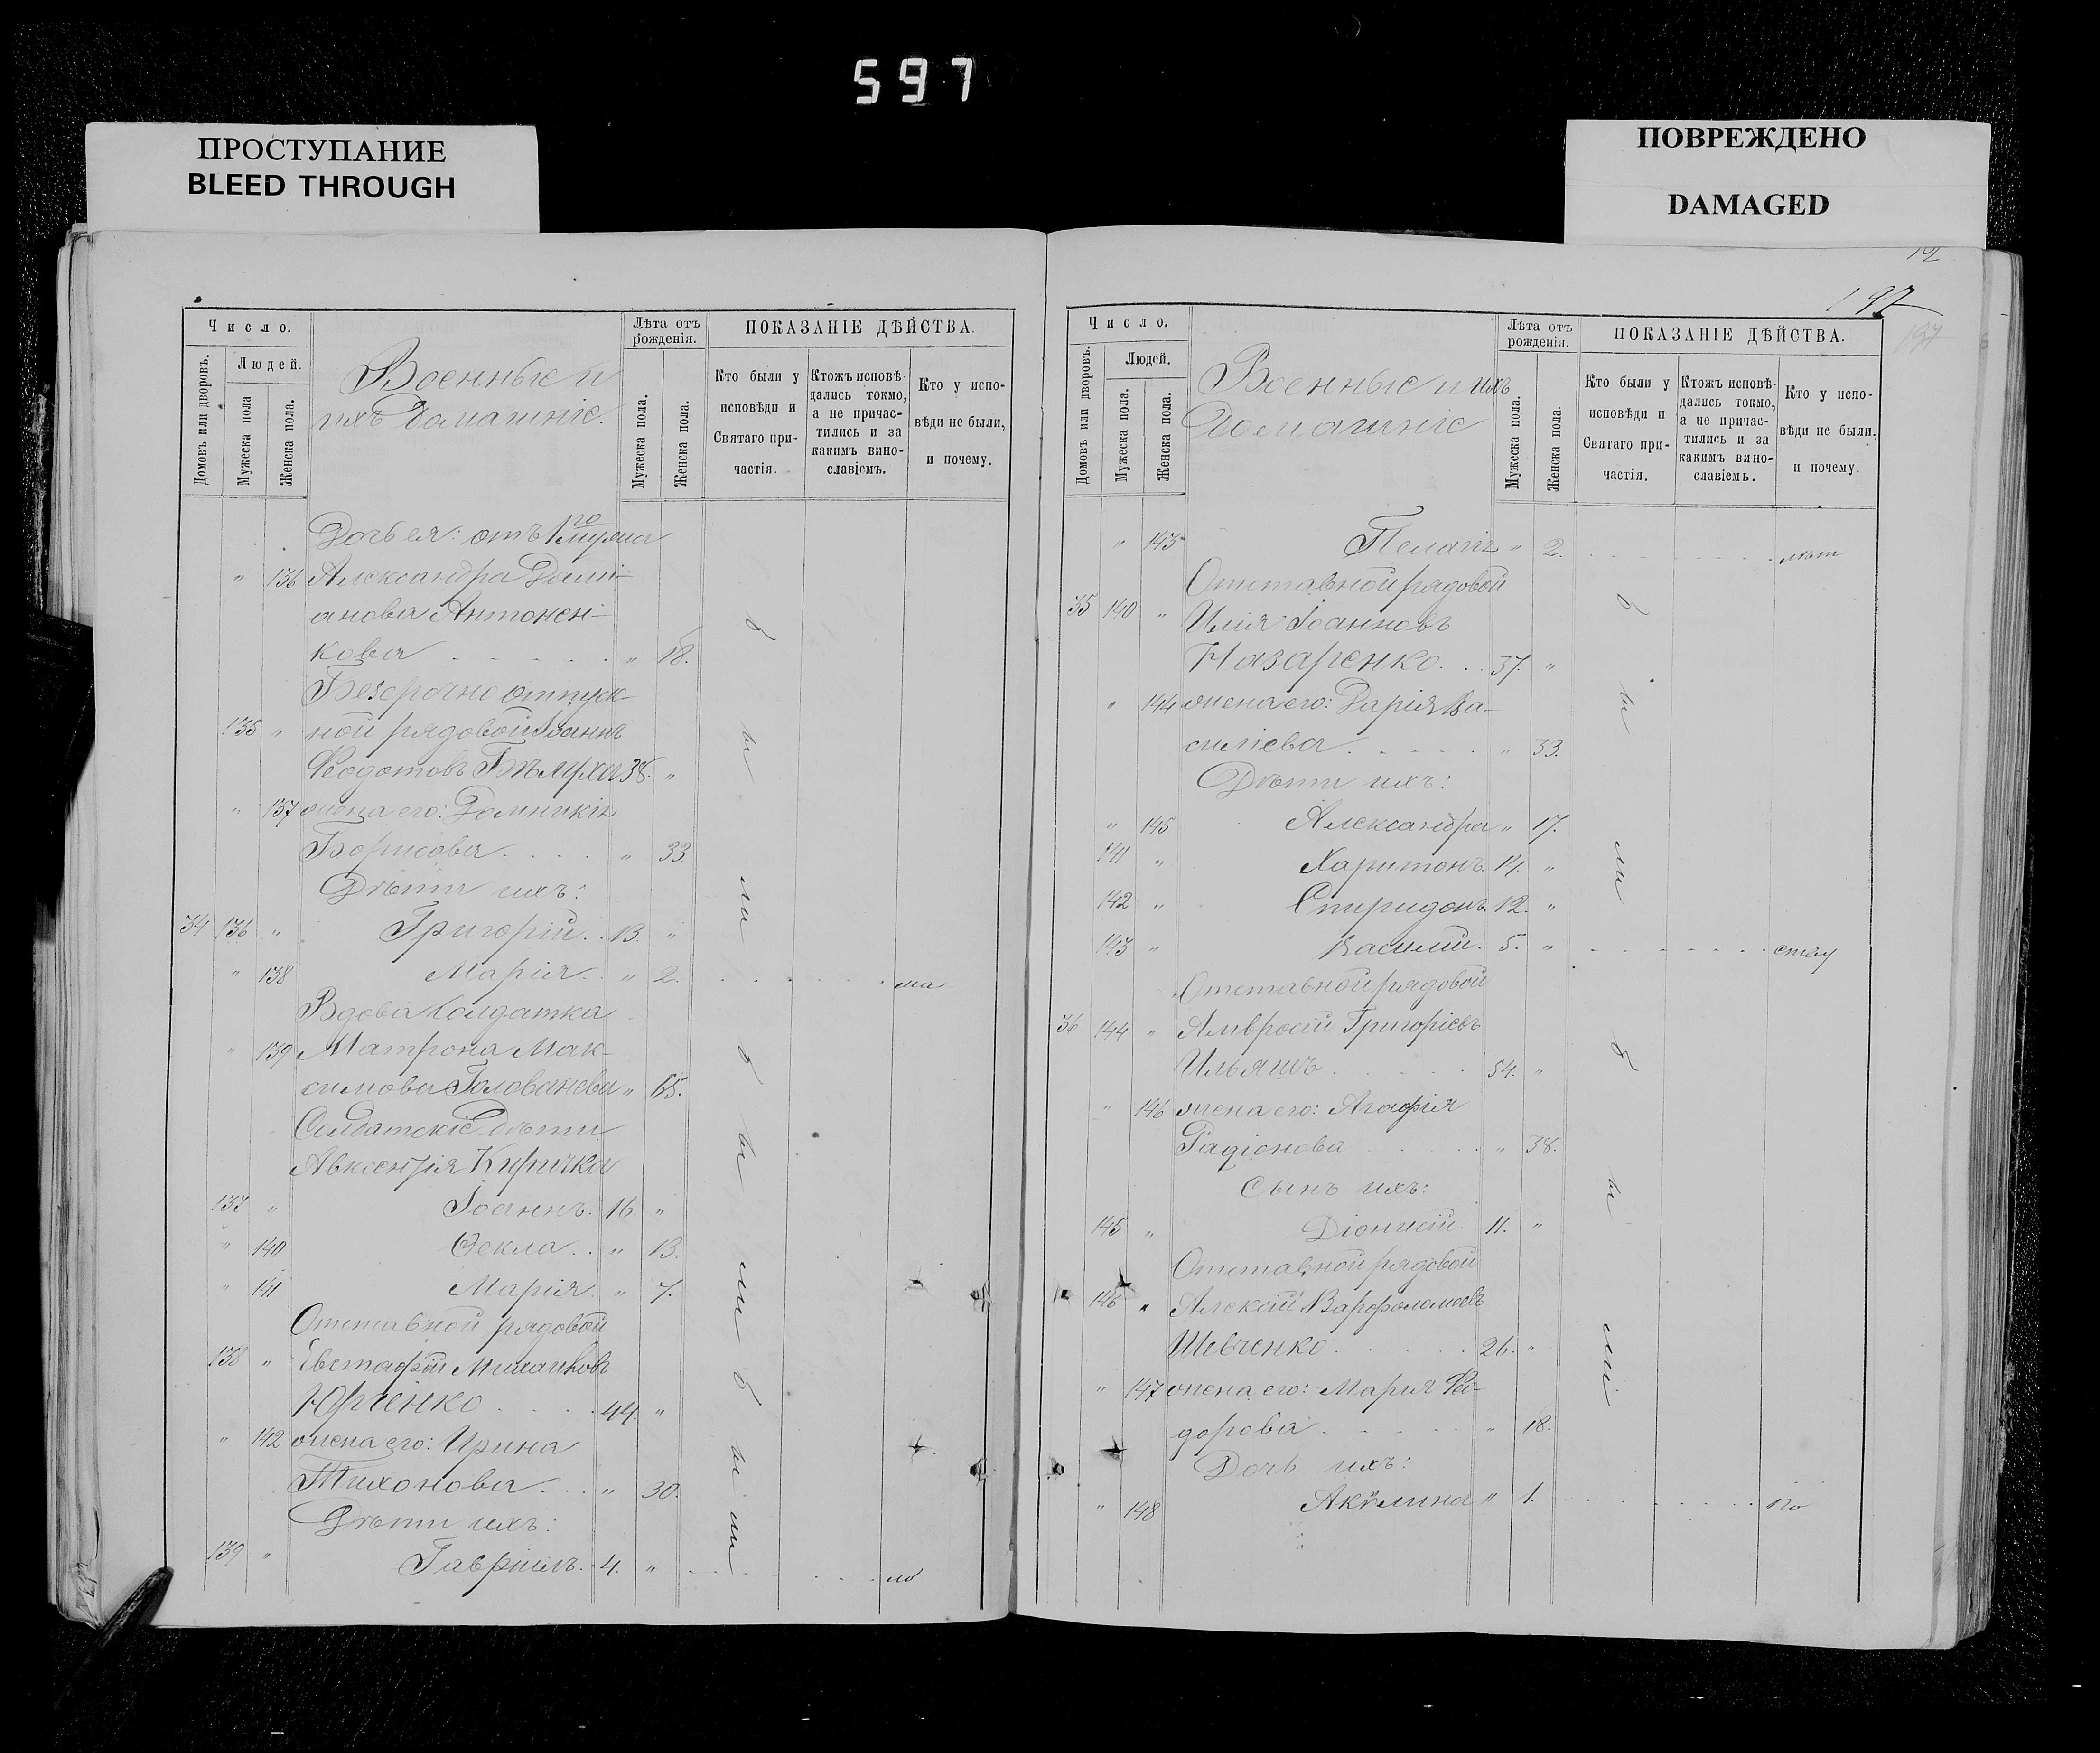 597
ПРОСТУПАНИЕ
BLEED THROUGH
ПОВРЕЖДЕНО
DAMAGED
Число.
Людей.
Домовъ или дворовъ.
Мужеска пола
Женска пола.
Военные и
ихъ Домашніе.
Лѣта отъ рожденія.
Мужеска пола.
Женска пола.
ПОКАЗАНІЕ ДѢЙСТВА.
Кто были у исповѣди и Святаго причастія.
Ктожъ исповѣдались токмо, а не причастились и за какимъ винославіемъ.
Кто у исповѣди не были, и почему.
Дочь ея: отъ 1го мужа
" 136 Александра Дамі-
анова Антонен-
кова " 18.
Безсрочно отпуск-
135 " ной рядовой Іоаннъ
Ѳеодотовъ Бѣлуха 38. "
" 137 жена его: Домникія
Борисова " 33.
Дѣти ихъ:
34 136 " Григорій 13 "
" 138 Марія " 2. ма
Вдова Солдатка
" 139 Матрона Мак-
симова Голованева " 65.
Солдатскіе Дѣти
Авксентія Киричка
137 " Іоаннъ 16. "
" 140 Ѳекла " 13.
" 141 Марія " 7.
Отставной рядовой
138 " Евстафій Михаиловъ
Юрченко 44. "
" 142 жена его: Ирина
Тихонова " 30.
Дѣти ихъ:
139 " Гавріилъ 4. " ло
были
были
были
197
197
Число.
Людей.
Домовъ или дворовъ.
Мужеска пола.
Женска пола.
Военные и ихъ
Домашніе
Лѣта отъ рожденія.
Мужеска пола.
Женска пола.
ПОКАЗАНІЕ ДѢЙСТВА.
Кто были у исповѣди и Святаго причастія.
Ктожъ исповѣдались токмо, а не причастились и за какимъ винославіемъ.
Кто у исповѣди не были, и почему.
" 143 Пелагія " 2. лѣт
Отставной рядовой
35 140 " Илія Іоанновъ
Назаренко 37. "
" 144 жена его: Дарія Ва-
силіева " 33.
Дѣти ихъ:
" 145 Александра " 17.
141 " Харитонъ 14. "
142 " Спиридонъ 12. "
143 " Василій 5. " ству
Отставной рядовой
36 144 " Амвросій Григоріевъ
Ильяшъ 54. "
" 146 жена его: Агафія
Радіонова " 38.
Сынъ ихъ:
145 " Діонисій 11. "
Отставной рядовой
146 " Алексій Варфоломеевъ
Шевченко 26. "
" 147 жена его: Марія Ѳео-
дорова " 18.
Дочь ихъ:
" 148 Акилина " 1. по
были
были